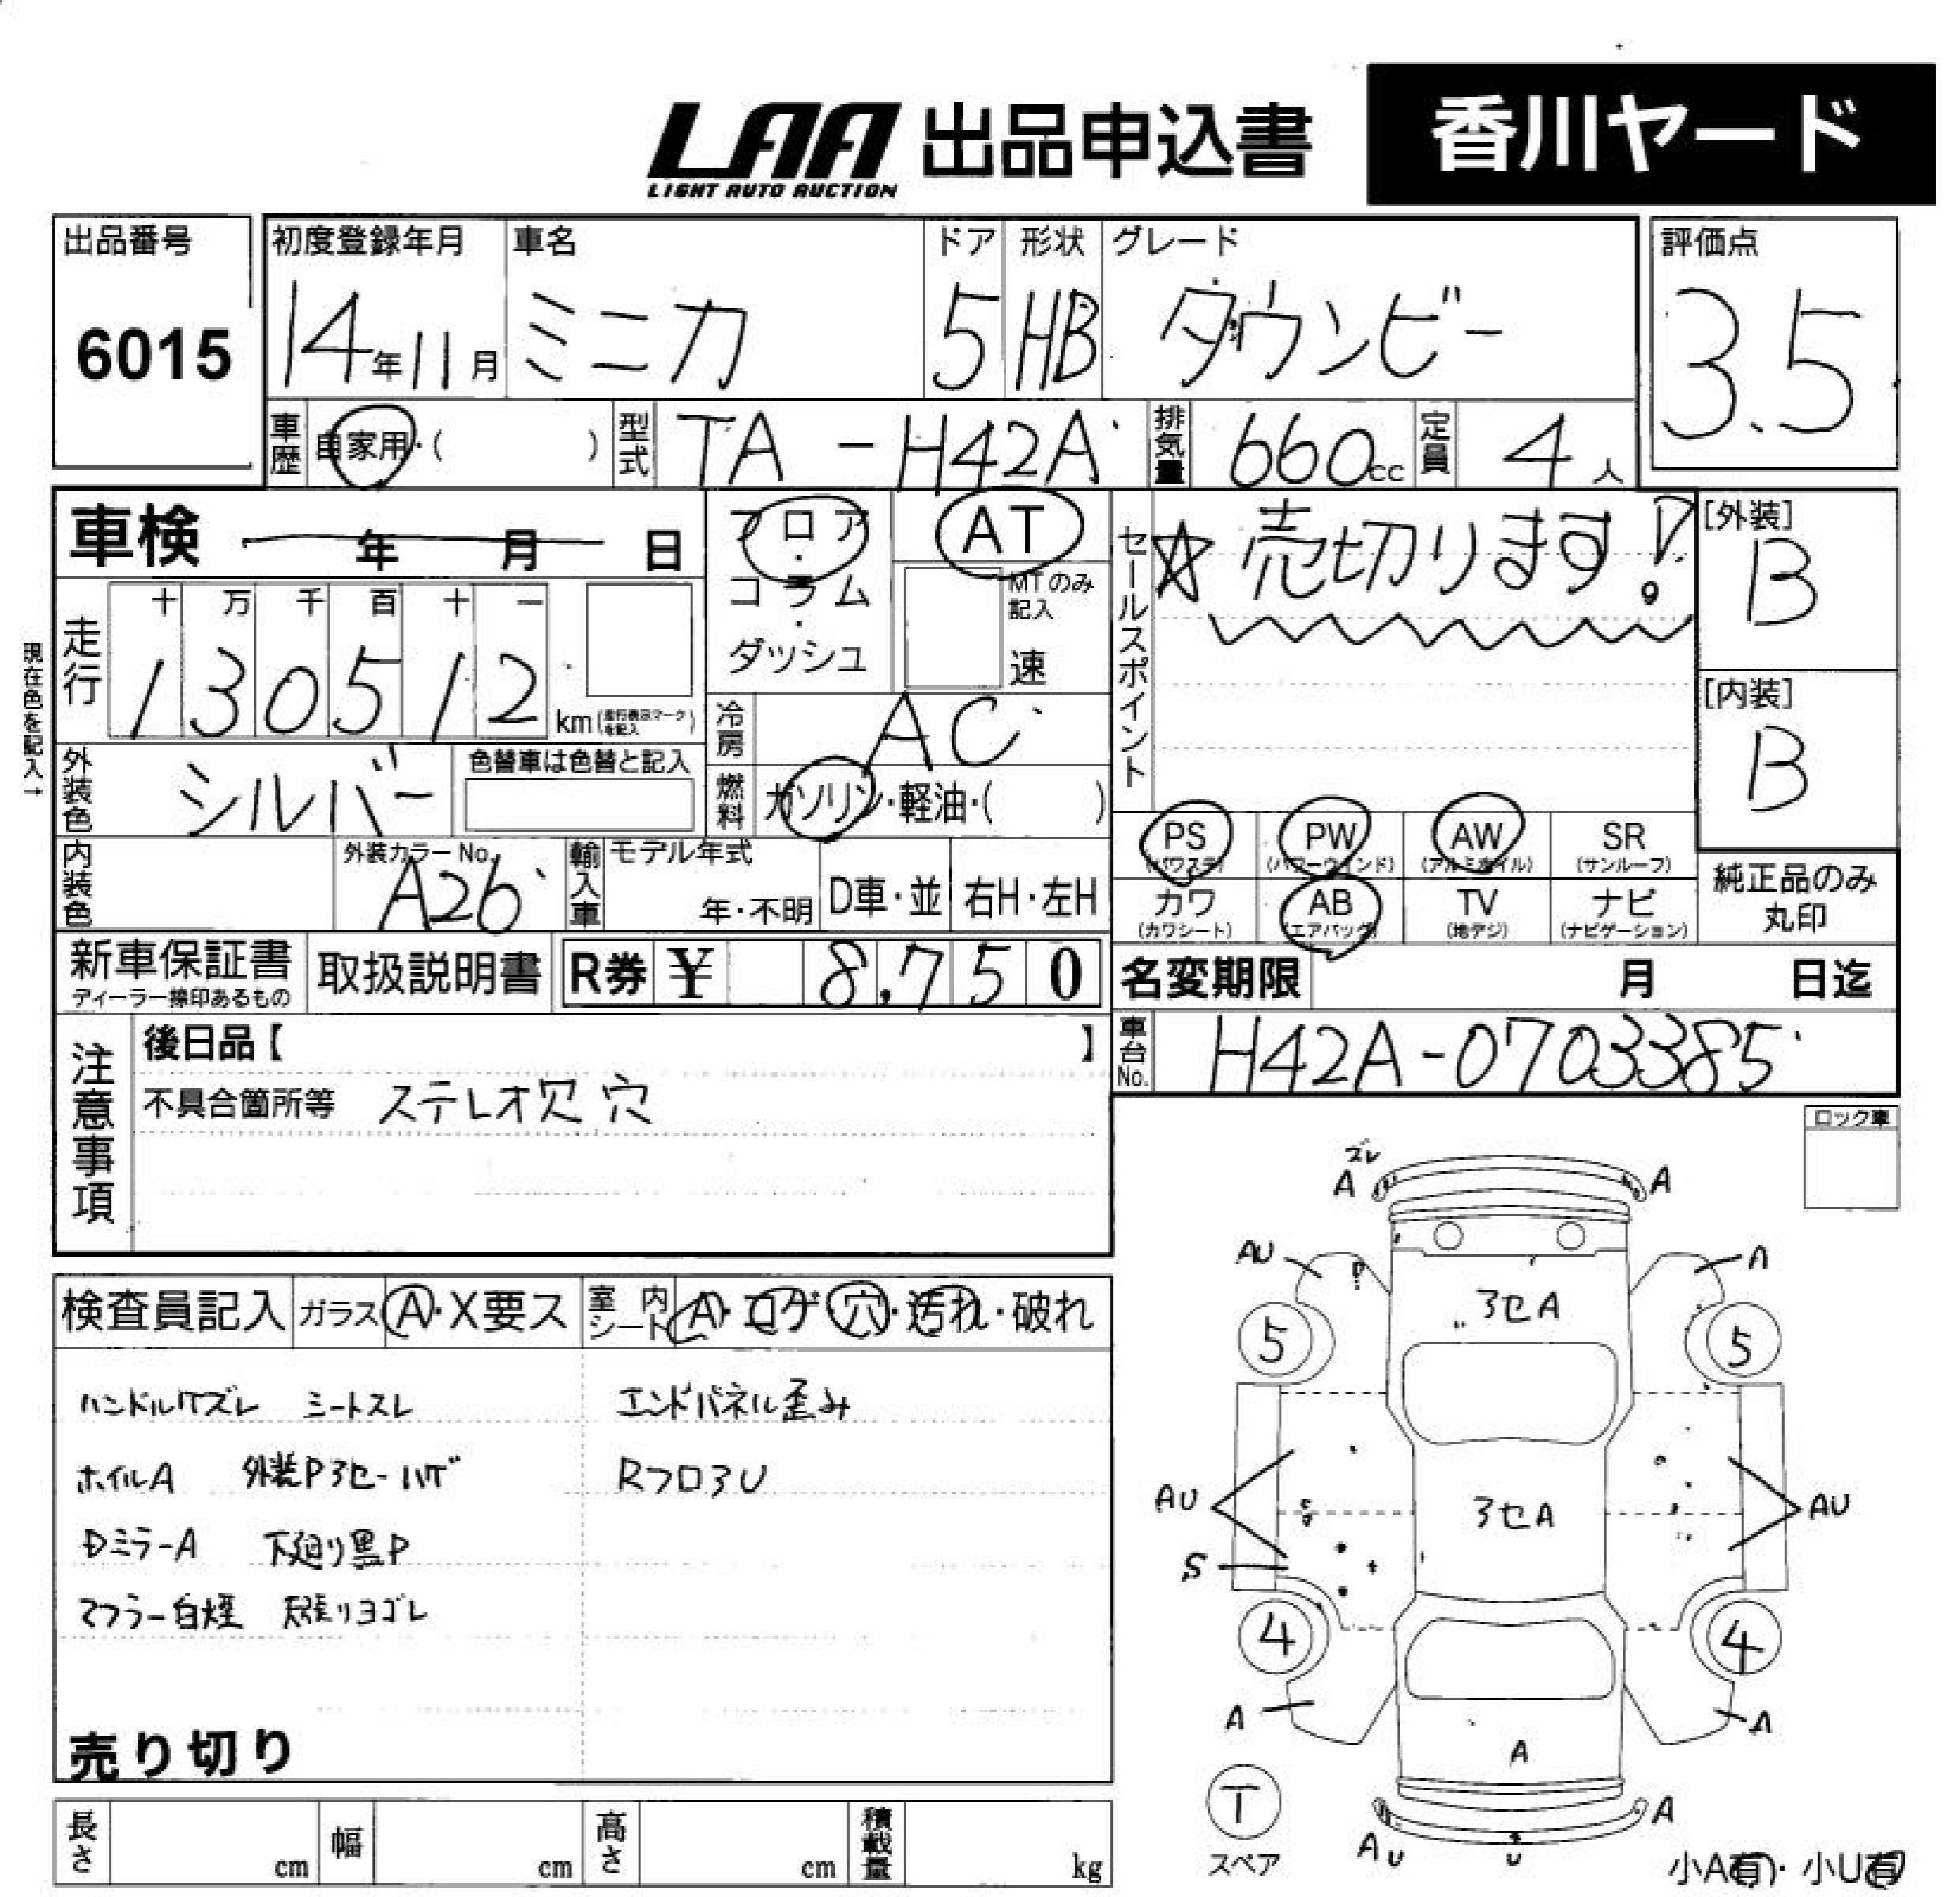 LAA 出品申込書 香川ヤード
LIGHT AUTO AUCTION
出品番号 初度登録年月 車名 ドア 形状 グレード 評価点
6015 14年11月 ミニカ 5 HB ダウンビー 3.5
車歴 自家用・( ) 型式 TA-H42A 排気量 660cc 定員 4人
車検 年 月 日
フロア・コラム・ダッシュ
AT
MTのみ記入
速
セールスポイント
☆売切ります!
[外装]
B
[内装]
B
現在色を記入→
走行
十 万 千 百 十 一
1 3 0 5 1 2 km (走行表示マークを記入)
冷房 AC
燃料 ガソリン・軽油・( )
外装色 シルバー 色替車は色替と記入
内装色 外装カラーNo. A26
輸入車 モデル年式 年・不明 D車・並 右H・左H
PS (パワステ) PW (パワーウィンド) AW (アルミホイル) SR (サンルーフ)
カワ (カワシート) AB (エアバッグ) TV (地デジ) ナビ (ナビゲーション)
純正品のみ
丸印
新車保証書 取扱説明書 R券 ¥ 8,750
ディーラー捺印あるもの
名変期限 月 日迄
車台No. H42A-0703385
注意事項
後日品【 】
不具合箇所等 ステレオ欠 穴
ロック車
検査員記入 ガラス A・X要ス 室内シート A・コゲ・穴・汚れ・破れ
ハンドルケズレ シートスレ エンドパネル歪み
ホイルA 外装Pヨセ-ハゲ RフロアU
Dミラ-A 下廻り黒P
マフラー白煙 天張りヨゴレ
売り切り
ズレ
A A
AU A
ヨセA
5 5
AU ヨセA AU
S
4 4
A A
A
T
スペア
A
AU U
小A有・小U有
長さ cm 幅 cm 高さ cm 積載量 kg